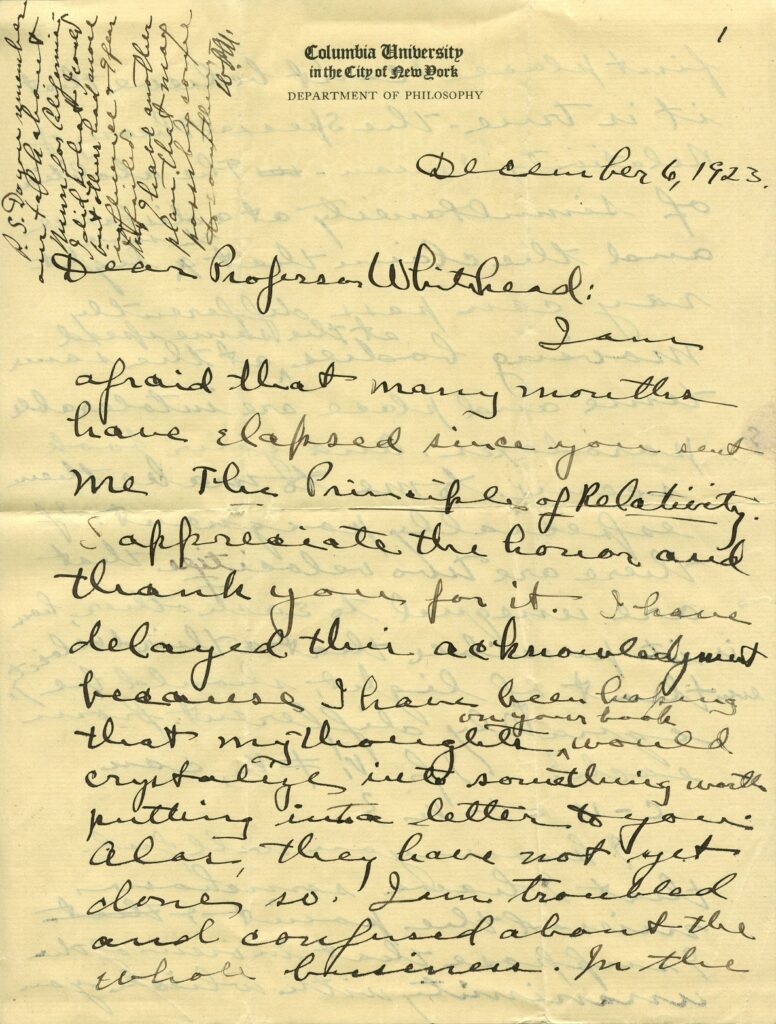 1
Columbia University
in the City of New York
DEPARTMENT OF PHILOSOPHY
December 6, 1923.
Dear Professor Whitehead:
I am
afraid that many months
have elapsed since you sent
me The Principle of Relativity.
I appreciate the honor and
thank you for it. I have
delayed this acknowledgment
because I have been hoping
on your book
that my thoughts ^ would
crystalize into something worth
putting into a letter to you.
Alas, they have not yet
done so. I am troubled
and confused about the
whole business. In the
P.S. Do you remember
our talk about
for California
I did what I could
but others had more
influence &
failed
I have another
plan that may
possibly come
to something